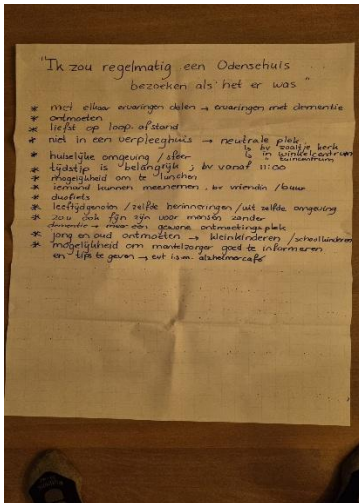 "Ik zou regelmatig een Odensehuis
bezoeken als het er was"
* met elkaar ervaringen delen → ervaringen met dementie
* ontmoeten
* liefst op loop afstand
* niet in een verpleeghuis → neutrale plek
↳ bv zaaltje kerk
↳ in winkelcentrum
tuincentrum
* huiselijke omgeving / sfeer
* tijdstip is belangrijk, bv vanaf 11:00
* mogelijkheid om te lunchen
* iemand kunnen meenemen, bv vriendin / buur
* duofiets
* leeftijdgenoten / zelfde herinneringen / uit zelfde omgeving
* zou ook fijn zijn voor mensen zonder
dementie → meer een gewone ontmoetingsplek
* jong en oud ontmoeten → kleinkinderen / schoolkinderen
* mogelijkheid om mantelzorger goed te informeren
en tips te geven → evt i.s.m. alzheimercafé